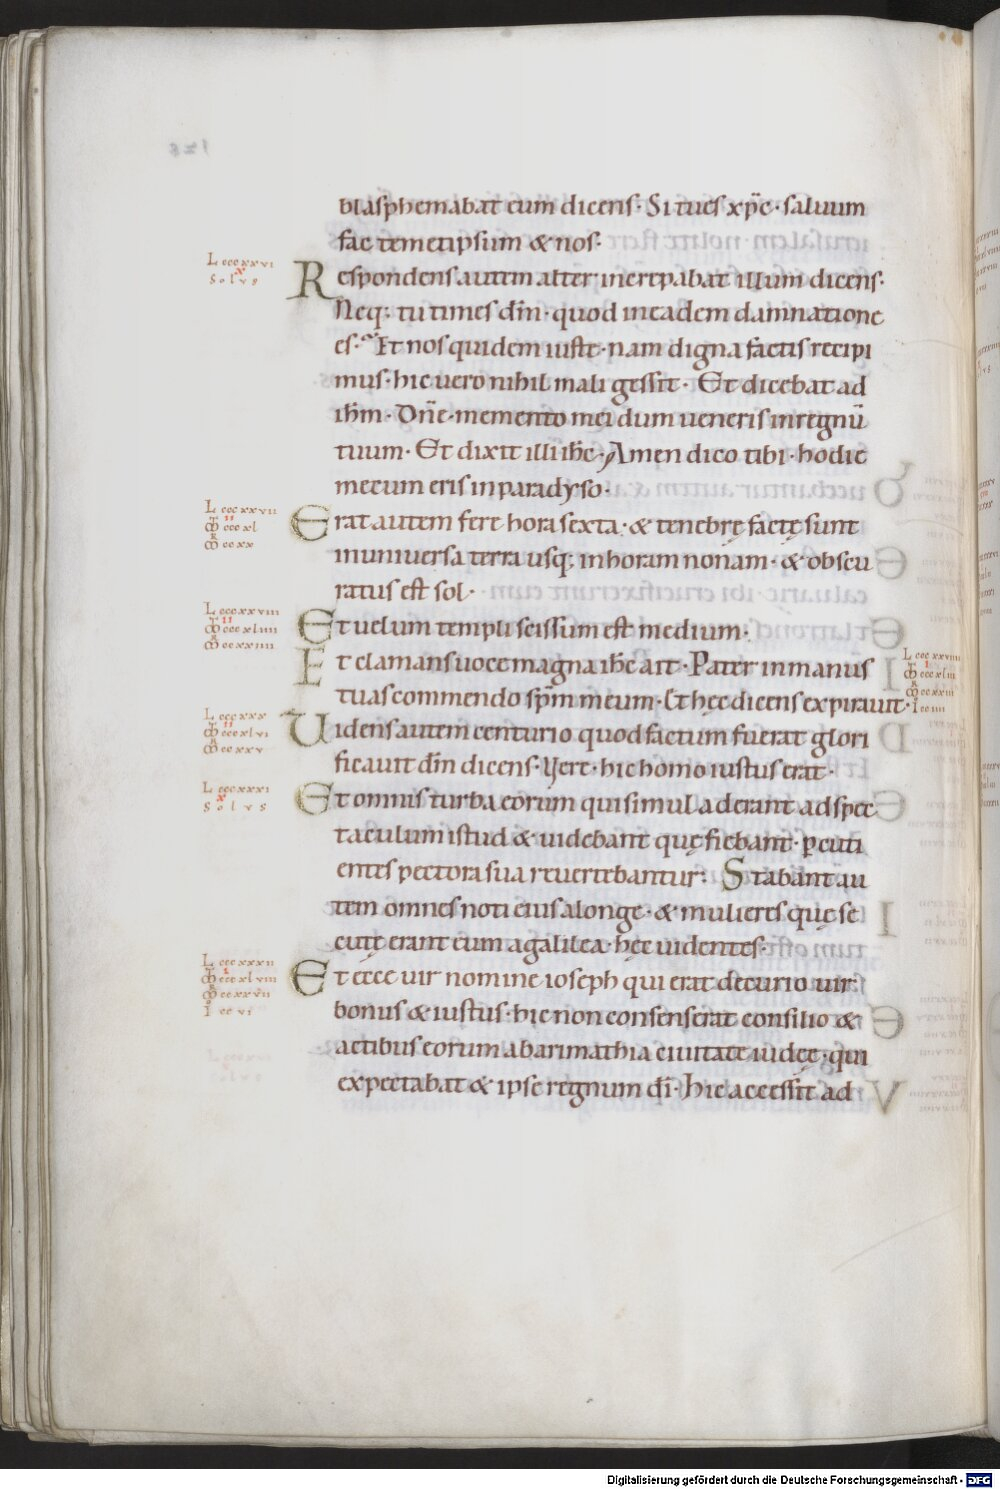 blasphemabat eum dicens· Si tu es xp̄c· saluum
fac temetipsum & nos·
L cccxxvi
x
Solvs
Respondens autem alter increpabat illum dicens·
Neq; tu times dm̄· quod in eadem damnatione
es· Et nos quidem iuste· nam digna factis recipi
mus· hic uero nihil mali gessit· Et dicebat ad
ihm̄· Dn̄e· memento mei dum ueneris in regnū
tuum· Et dixit illi ih̄c· Amen dico tibi· hodie
mecum eris in paradyso·
L cccxxvii
II
cccxl
ccxx
Erat autem fere hora sexta· & tenebrę factę sunt
in uniuersa terra usq; in horam nonam· & obscu
ratus est sol·
L cccxxviii
II
cccxliiii
ccxxiiii
Et uelum templi scissum est medium·
Et clamans uoce magna ih̄c ait· Pater in manus
L cccxxviiii
I
cccxliii
ccxxiii
I ciiii
tuas commendo spm̄ meum· Et hęc dicens expirauit·
L cccxxx
II
cccxlvi
ccxxv
Uidens autem centurio quod factum fuerat glori
ficauit dm̄ dicens· Vere· hic homo iustus erat·
L cccxxxi
x
Solvs
Et omnis turba eorum qui simul aderant ad spec
taculum istud & uidebant quę fiebant· percuti
entes pectora sua reuertebantur· Stabant au
tem omnes noti eius a longe· & mulieres quę se
cutę erant eum a galilea· hęc uidentes·
L cccxxxii
I
cccxlviii
ccxxvii
I ccvi
Et ecce uir nomine ioseph qui erat decurio uir
bonus & iustus· hic non consenserat consilio &
actibus eorum ab arimathia ciuitate iudęę· qui
expectabat & ipse regnum dī· Hic accessit ad
Digitalisierung gefördert durch die Deutsche Forschungsgemeinschaft - DFG